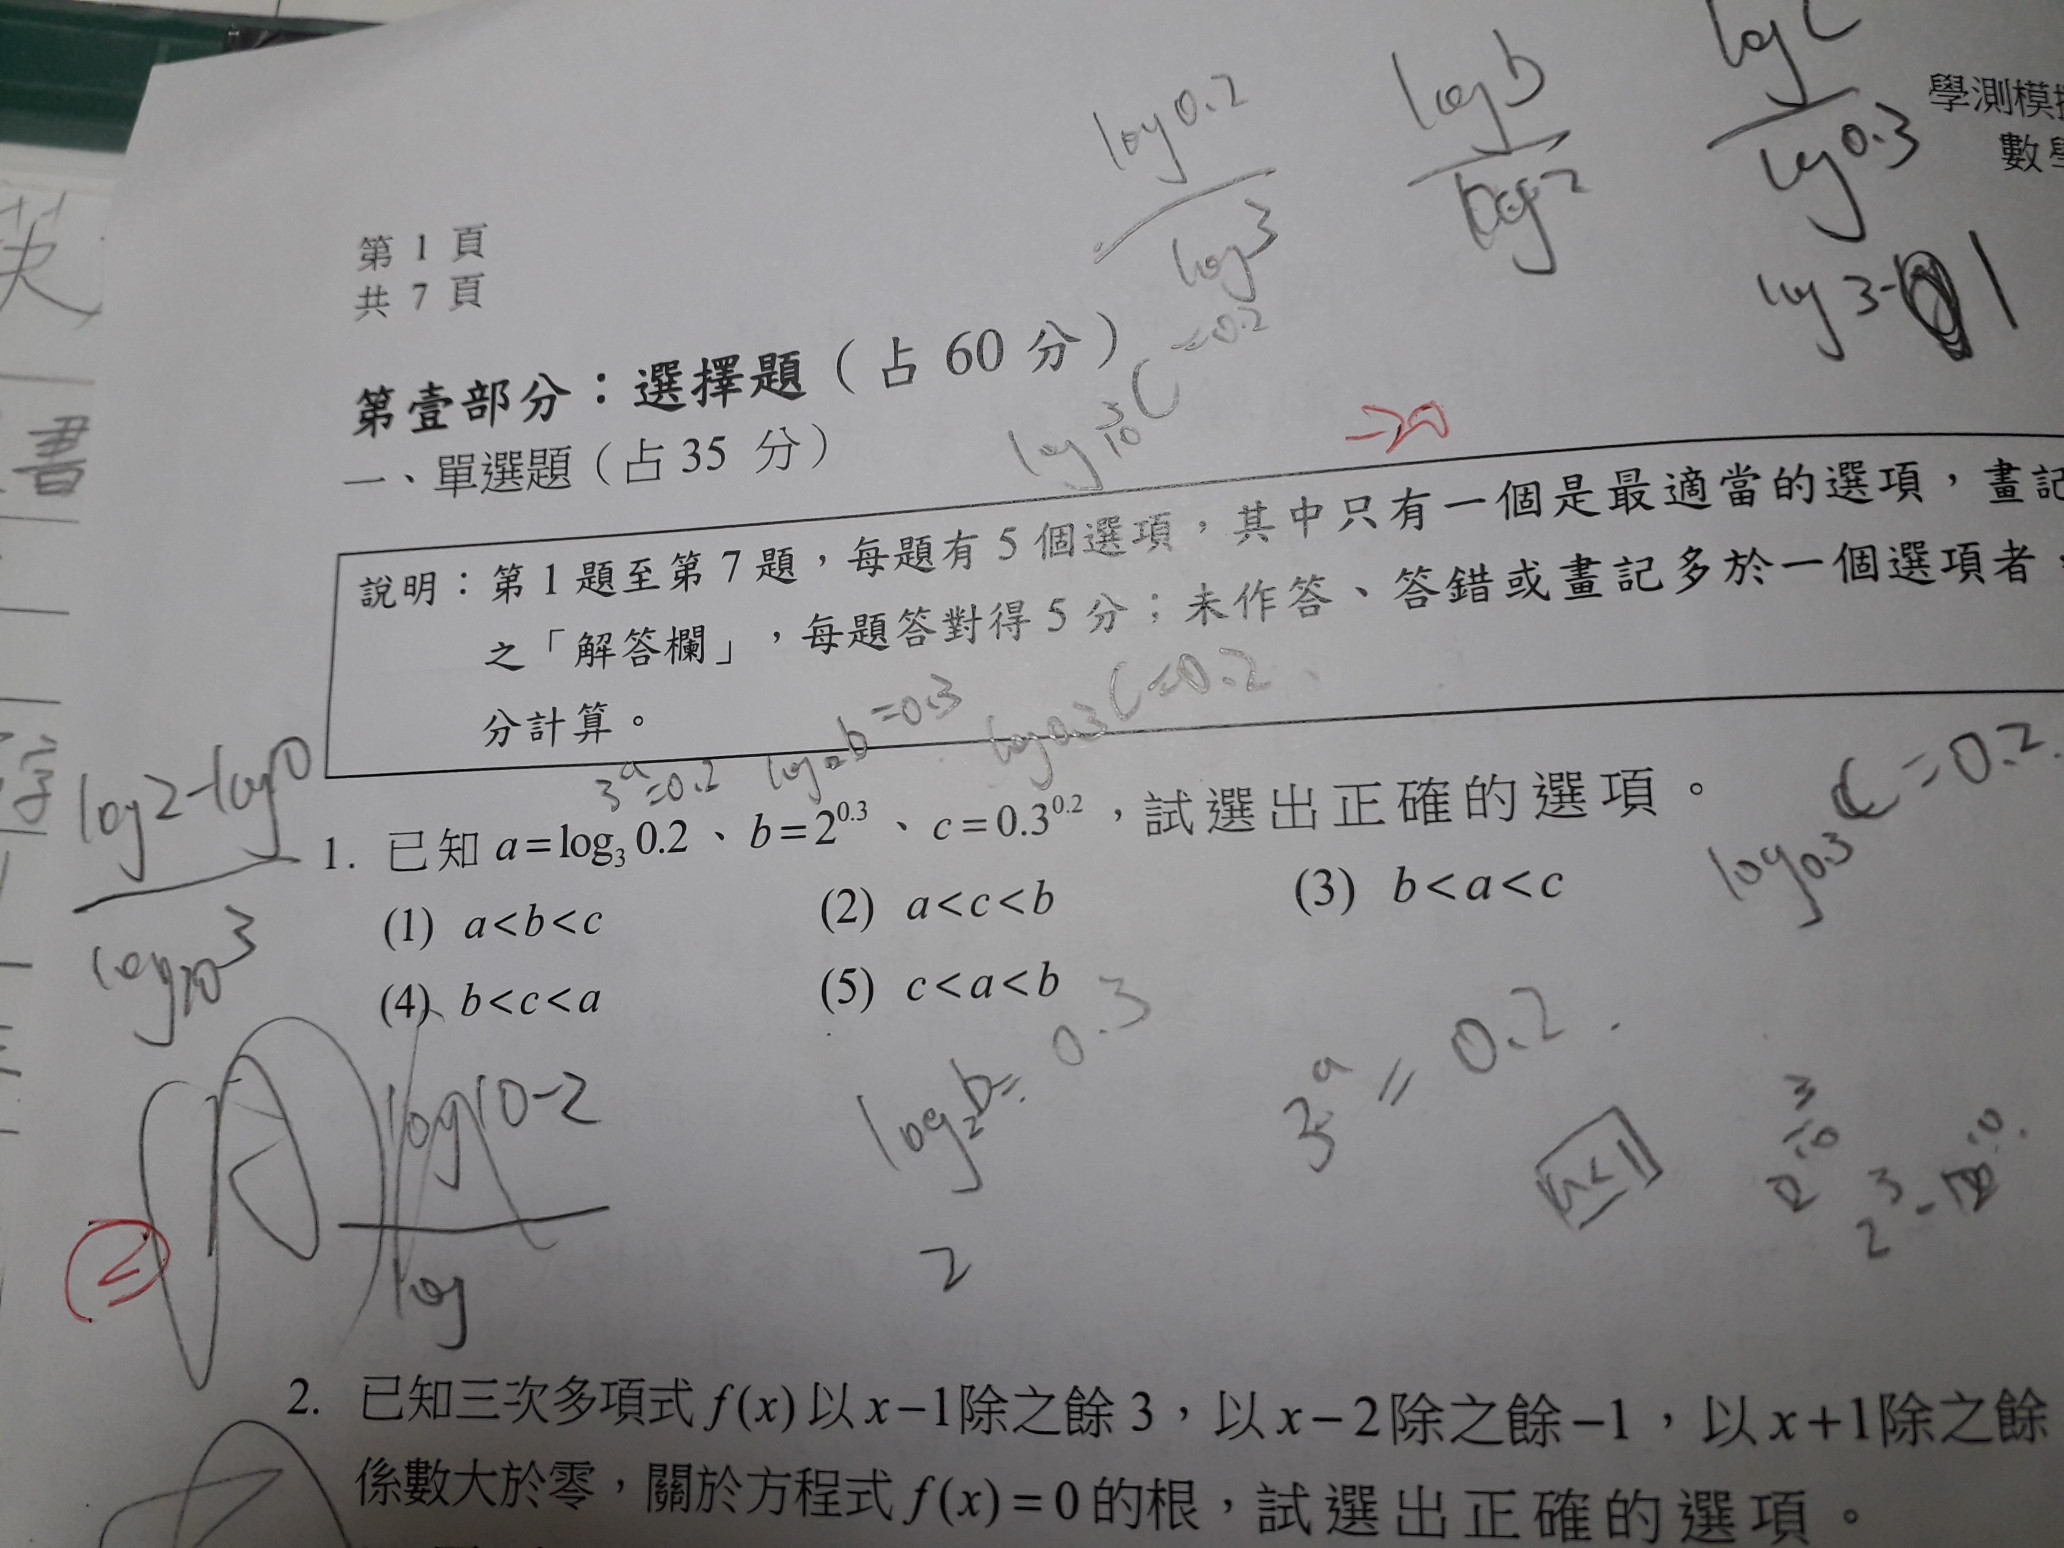 log0.2
log3
logb
log2
logc
log0.3
學測模
數學
log3-1
第 1 頁
共 7 頁
第壹部分：選擇題（占 60 分）
一、單選題（占 35 分）
log 3/10 C=0.2
-20
說明：第 1 題至第 7 題，每題有 5 個選項，其中只有一個是最適當的選項，畫記
之「解答欄」，每題答對得 5 分；未作答、答錯或畫記多於一個選項者，
分計算。
3^a=0.2 log₂b=0.3 log0.3C=0.2
log2-log10
log₁₀3
1. 已知 a=log₃ 0.2、b=2^0.3、c=0.3^0.2，試選出正確的選項。
log0.3 C=0.2
(1) a<b<c (2) a<c<b (3) b<a<c
(4) b<c<a (5) c<a<b
log10-2
log
log₂b=0.3
2
3^a=0.2
a<1
2
2. 已知三次多項式 f(x) 以 x−1除之餘 3，以 x−2除之餘−1，以 x+1除之餘
係數大於零，關於方程式 f(x)=0 的根，試選出正確的選項。
英
書
字